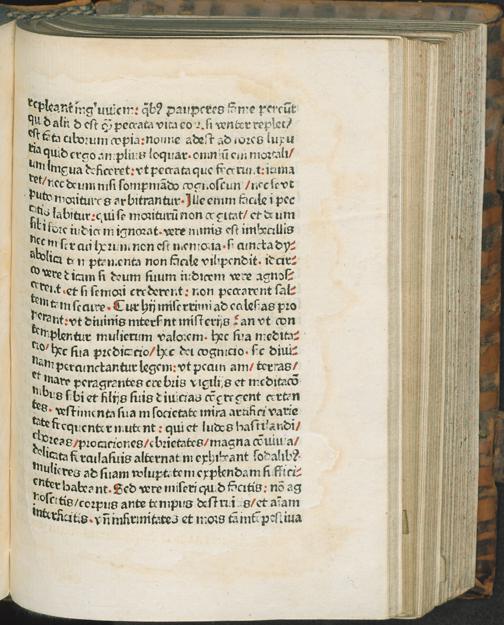 repleant ing'uuiem: qb9 pauperes fame pereūt
qui d aliud est q̄ peccata vita eoꝝ. si venter repletꝰ
est tāta ciborum copia: nonne adest ad fores luxu
ria quid ergo amplius loquar. omniū em mortaliū
um lingua deficeret: vt peccata que fecerunt: iama
ret/nec deum nisi sompniādo cognoscunt/nec se vt
puto morituros arbitrantur. Ille enim facile i pec
catis labitur: qui se moriturū non cogitat/et deum
sibi fore iudicem ignorat. vere nimis est imbecillis
nec miseri cui horum non est memoria. si cuncta dy⸗
abolica temptamenta non facile vilipendit. idcir⸗
co vere dicam si deum suum iudicem vere agnos⸗
cerent. et si se mori crederent: non peccarent sal⸗
tem tam secure. Cur hij miserrimi ad ecclesias pro
perant: vt diuinis intersint misterijs: an vt con
templentur mulierum valorem. hec sua medita⸗
cio/hec sua predicacio/hec dei cognicio. sic diui⸗
nam percunctantur legem: vt pecuniam/terras/
et mare peragrantes crebris vigilijs et meditacō
nibus sibi et filijs suis diuicias cōgregent certan
tes. vestimenta sua in societate mira artifici varie
tate frequenter mutent: qui et ludos hastilandi/
choreas/procaciones/ebrietates/magna cōuiuia/
delicata fercula suis alternatim exhibeant sodalibꝰ
mulieres ad suam voluptatem explendam suffici⸗
enter habeant. Sed vere miseri quid facitis: nō ag
noscitis/corpus ante tempus destruitis/et aīam
interficitis. vn̄ infirmitates et mors tam intēpestiua